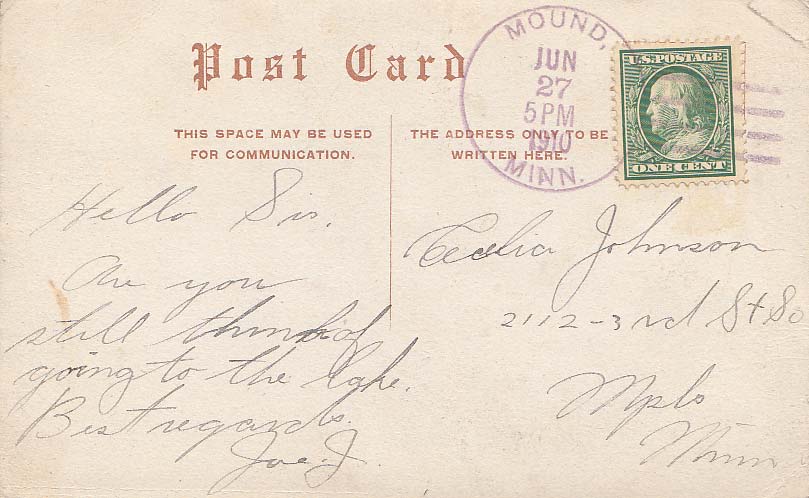 Post Card
THIS SPACE MAY BE USED
FOR COMMUNICATION.
THE ADDRESS ONLY TO BE
WRITTEN HERE.
MOUND,
JUN
27
5 PM
1910
MINN.
U.S. POSTAGE
ONE CENT
Hello Sis.
Are you
still thinking of
going to the lake.
Best regards.
Joe. J.
Cecelia Johnson
2112-3rd St So
Mpls
Minn